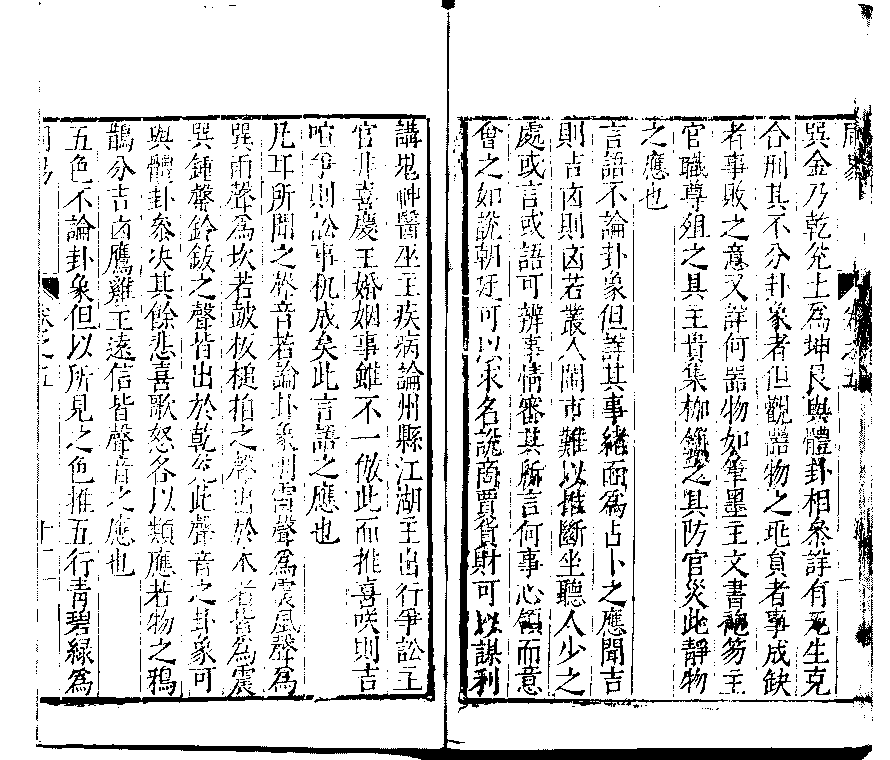 周易 卷之五
巽金乃乾兊土爲坤艮與體卦相叅詳有无生克
合刑其不分卦象者但觀器物之 者事成缺
者事敗之意又詳何器物如筆墨主文書袍笏主
官職尊俎之具主貴集枷鎖之具防官災此靜物
之應也
言語不論卦象但詳其事緒而爲占卜之應聞吉
則吉凶則凶若叢人閙市難以推斷坐聽人少之
處或言或語可辨事情審其所言何事心領而意
會之如說朝廷可以求名說商賈貨財可以謀利
講鬼 醫巫主疾病論州縣江湖主出行爭訟主
官非喜慶主婚姻事雖不一倣此而推喜咲則吉
喧爭則訟事机成矣此言語之應也
凡耳所聞之聲音若論卦象則雷聲爲震風聲爲
巽雨聲爲坎若皷板槌拍之聲出於木者皆爲震
巽鍾磬鈴鈸之聲皆出於乾兊此聲音之卦象可
與體卦叅决其餘悲喜歌怒各以類應若物之鴉
鵲分吉凶鷹雞主遠信皆聲音之應也
五色不論卦象但以所見之色推五行靑碧緑爲
周易 卷之五 十一